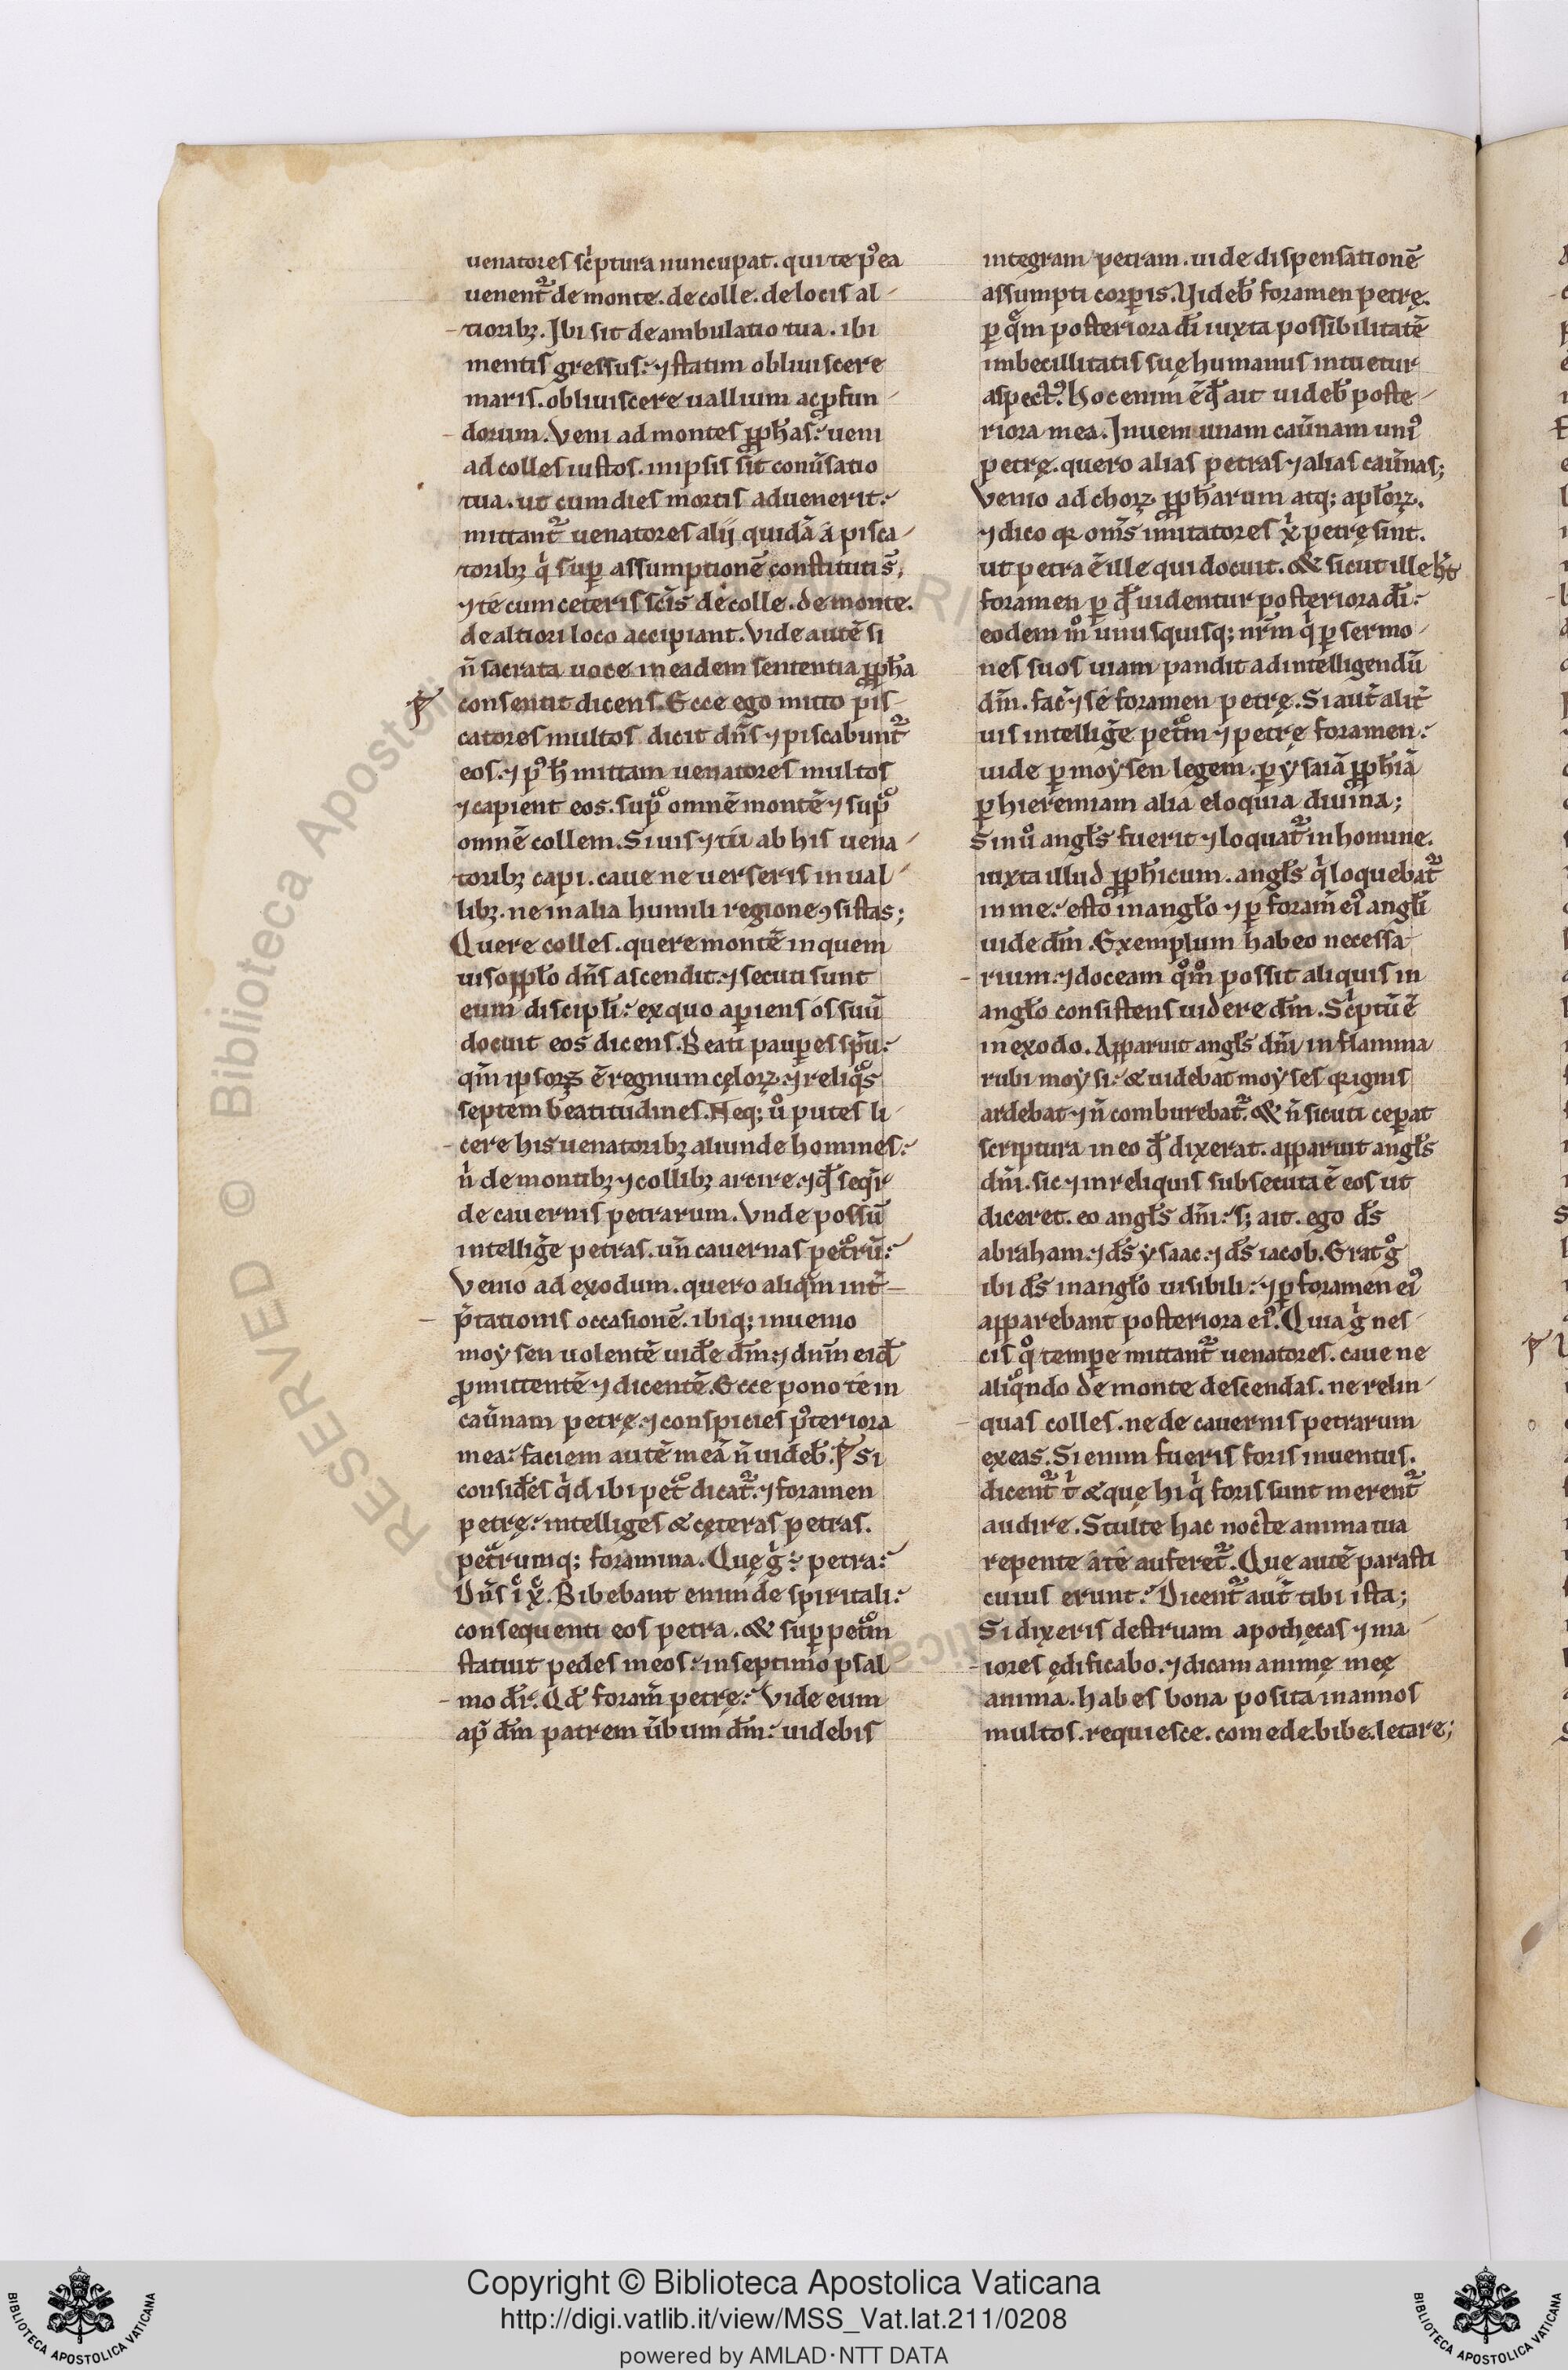 uenatores sc̓ptura nuncupat. qui te pꝰea
uenent᷑ de monte. de colle. de locis al-
tioribꝫ. Ibi sit deambulatio tua. ibi
mentis gressus: ⁊ statim obliuiscere
maris. obliuiscere uallium ac ꝓfun-
dorum. Veni ad montes ꝓph̄as: ueni
ad colles iustos. in ipsis sit conu̓satio
tua. ut cum dies mortis aduenerit:
mittant᷑ uenatores alij quidā á pisca-
toribꝫ qͥ suꝑ assumptionē constituti s̄,
⁊ té cum ceteris sc̄is de colle. de monte.
de altiori loco accipiant. Vide autē si
n̄ sacrata uoce in eadem sententia ꝓph̄a
consentit dicens. Ecce ego mitto pis-
catores multos dicit dn̄s ⁊ piscabunt᷑
eos. ⁊ pꝰ h̄ mittam uenatores multos
⁊ capient eos. sup̊ omnē montē ⁊ sup̊
omnē collem. Si uis ⁊ tú ab his uena-
toribꝫ capi. caue ne uerseris in ual-
libꝫ. ne in alia humili regione ꝯsistas;
Quere colles. quere montē in quem
uiso ppl̄o dn̄s ascendit: ⁊ secuti sunt
eum discipl̄i: ex quo aꝑiens ós suū
docuit eos dicens. Beati pauꝑes sp̄u:
qm̄ ipsoꝝ ē regnum cęloꝝ. ⁊ reliqͦs
septem beatitudines. Neq; ů putes li-
cere his uenatoribꝫ aliunde homines:
nͥ de montibꝫ ⁊ collibꝫ arcire. ⁊ qd̄ seqͥr
de cauernis petrarum. Vnde possū
intellig̓e petras. un̄ cauernas petrͣrū:
Venio ad exodum. quero aliqͣm int̓-
p̄tationis occasionē. ibiq; inuenio
moẏsen uolentē uid̓e dm̄: ⁊ dnm̄ eid̄
ꝓmittentē ⁊ dicentē. Ecce pono té in
cau̓nam petrę. ⁊ conspicies pꝰteriora
mea: faciem autē meā n̄ uideb̄. Si
consid̓es qͥd ibi petͣ dicat᷑. ⁊ foramen
petrę: intelliges & cęteras petras.
petrͣrumq; foramina. Quę gͥ: petra:
Dn̄s ic̄ xc̄. Bibebant enim de spiritali:
consequenti eos petra. & suꝑ petͣm
statuit pedes meos: in septimo psal-
mo dr̄. Qd̄ foram̄ petrę: Vide eum
ap̄ dm̄ patrem u̓bum dm̄: uidebis
integram petram. uide dispensationē
assumpti corꝑis. Uideb̄ foramen petrę.
ꝑ qͦm posteriora dī iuxta possibilitatē
imbecillitatis suę humanus intuetur
aspectꝰ. Hoc enim ē qd̄ ait uideb̄ poste-
riora mea. Inueni unam cau̓nam uniꝰ
petrę. quero alias petras ⁊ alias cau̓nas;
Venio ad choꝝ ꝓph̄arum atq; apl̄oꝝ.
⁊ dico qꝛ om̄s imitatores xͥ petrę sint.
ut petra ē ille qui docuit. & sicut ille h̄t
foramen ꝑ qd̄ uidentur posteriora dī:
eodem m̊ unusquisq; nrm̄ qͥ ꝑ sermo-
nes suos uiam pandit ad intelligendū
dm̄. fac̓ ⁊ sé foramen petrę. Si aut̄ alit̓
uis intellig̓e petͣm ⁊ petrę foramen:
uide ꝑ moẏsen legem. ꝑ ẏsaiā ꝓph̄iā
ꝑ hieremiam alia eloquia diuina;
Sin ů angl̄s fuerit ⁊ loquat᷑ in homine.
iuxta illud ꝓph̄icum. angl̄s qͥ loquebat᷑
in me: esto in angl̄o ⁊ ꝑ foram̄ eiꝰ angl̄i
uide dm̄. Exemplum habeo necessa-
rium: ⁊ doceam qͦm̊ possit aliquis in
angl̄o consistens uidere dm̄. Sc̓ptū ē
in exodo. Apparuit angl̄s dn̄i in flamma
rubi moẏsi: & uidebat moẏses qꝛ ignis
ardebat ⁊ n̄ comburebat᷑. & n̄ sicuti ceꝑat
scriptura in eo qd̄ dixerat. apparuit angl̄s
dn̄i. sic ⁊ in reliquis subsecuta ē eos ut
diceret. eo angl̄s dn̄i: s; ait. ego d̄s
abraham. ⁊ d̄s ẏsaac. ⁊ d̄s iacob. Erat gͦ
ibi d̄s in angl̄o uisibili: ⁊ ꝑ foramen eiꝰ
apparebant posteriora eiꝰ. Quia gͥ nes-
cis qͦ tempe mittant᷑ uenatores. caue ne
aliqͣndo de monte descendas. ne relin-
quas colles. ne de cauernis petrarum
exeas. Si enim fueris foris inuentus.
dicent᷑ tͥ & que hi qͥ foris sunt merent᷑
audire. Stulte hac nocte anima tua
repente á té auferet᷑. Que autē parasti
cuius erunt: Dicent᷑ aut̄ tibi ista;
Si dixeris destruam apothecas ⁊ ma-
iores ędificabo. ⁊ dicam animę meę
anima. habes bona posita in annos
multos. requiesce. comede. bibe. letare;
© Biblioteca Apostolica Vaticana
RESERVED
Copyright © Biblioteca Apostolica Vaticana
http://digi.vatlib.it/view/MSS_Vat.lat.211/0208
powered by AMLAD·NTT DATA
BIBLIOTECA APOSTOLICA VATICANA
BIBLIOTECA APOSTOLICA VATICANA